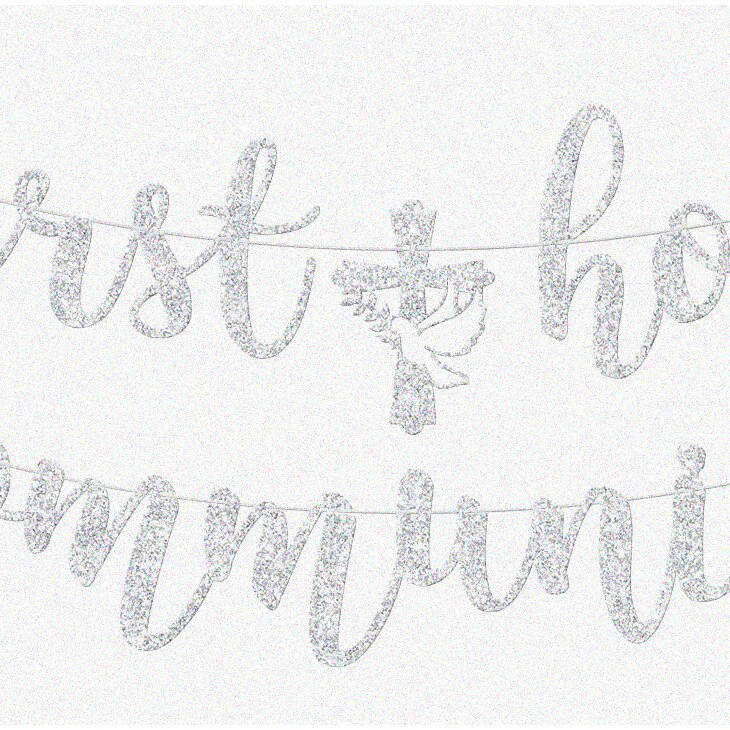 rst ho
ommuni